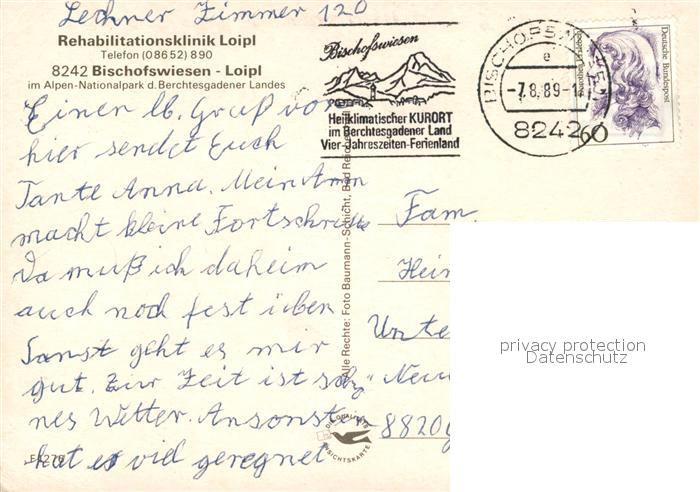 Lechner Zimmer 120
Rehabilitationsklinik Loipl
Telefon (08652) 890
8242 Bischofswiesen - Loipl
im Alpen-Nationalpark d. Berchtesgadener Landes
Einen lb. Gruß von
hier sendet Euch
Tante Anna. Mein Arm
macht kleine Fortschritte
Da muß ich daheim
auch noch fest üben
Sonst geht es mir
gut. Zur Zeit ist schö-
nes Wetter. Ansonsten
hat es viel geregnet
Bischofswiesen
Heilklimatischer KURORT
im Berchtesgadener Land
Vier-Jahreszeiten-Ferienland
BISCHOFSWIESEN
e
-7.8.89-1
8242
Deutsche Bundespost
60
Alle Rechte: Foto Baumann-Schicht, Bad Reichenhall
Fam.
Hein
Unte
Neu
8820
DIE QUALITÄTS
ANSICHTSKARTE
privacy protection
Datenschutz